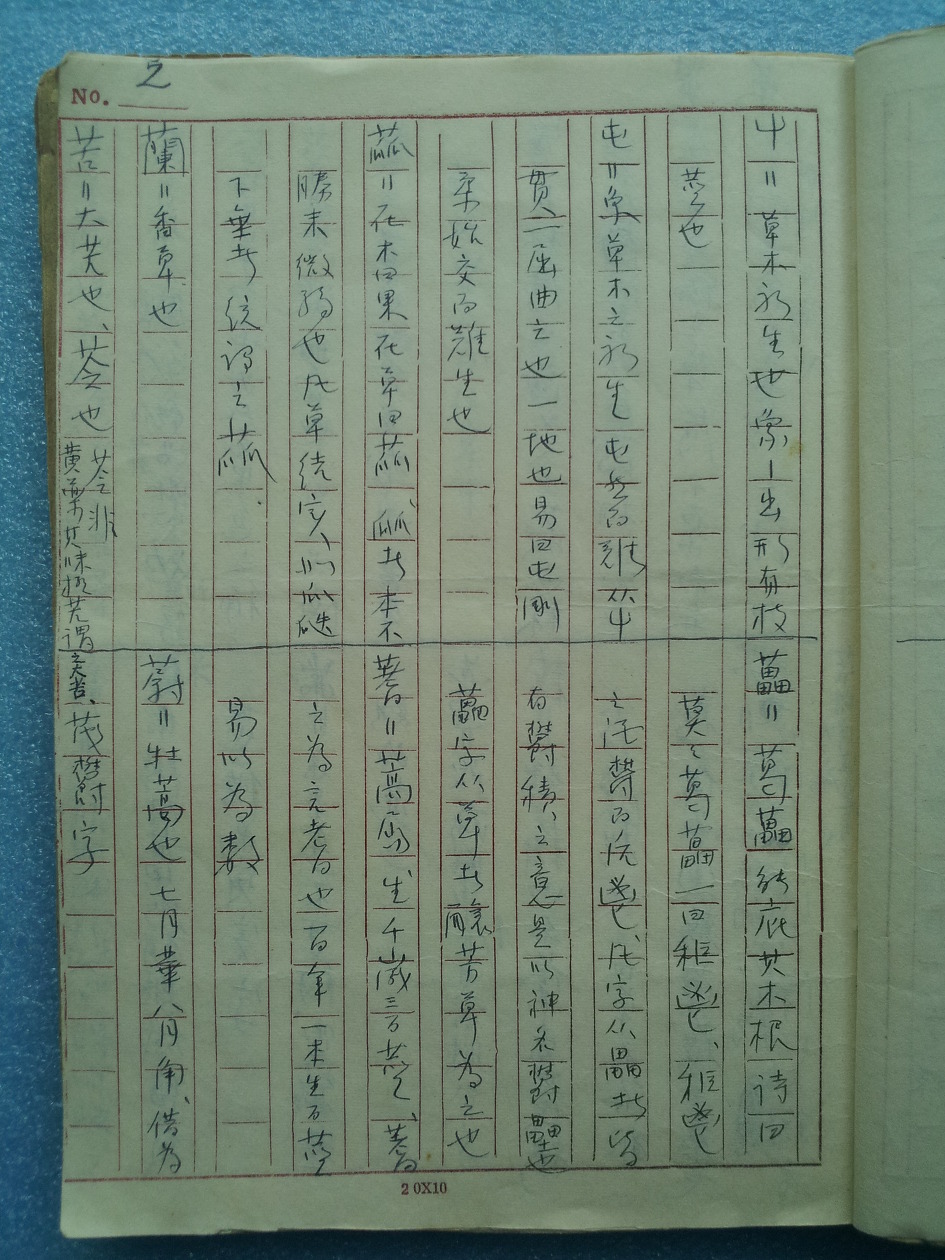 No. 2
屮＝草木初生也象丨出形有枝
莖也
屯＝象草木之初生屯然而難从屮
貫一屈曲之也一地也易曰屯剛
柔始交而難生也
蓏＝在木曰果在草曰蓏、㼌者本不
勝末微弱也凡草結実、如瓜瓞
下垂者統謂之蓏、
蘭＝香草也
苦＝大苦也、苓也
苓非
黄薬其味極苦謂
之大苦、
藟＝葛藟能庇其本根詩曰
莫々葛藟一曰秬鬯、秬鬯
有鬱積之意是以神名鬱壘也
蓍＝蒿属生千歳三百莖、蓍
之為言耆也百年一本生百莖
易以為数
蔚＝牡蒿也七月華八月角、借為
茂鬱字
20X10